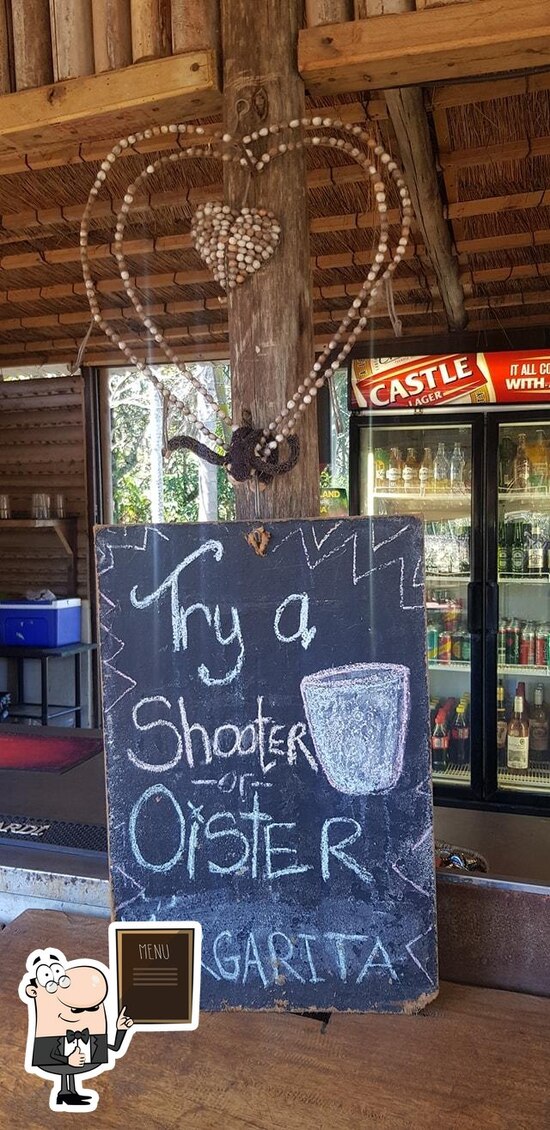 CASTLE
LAGER
IT ALL CO
WITH
LAND
Try a
Shooter
-or-
Oister
RGARITA
MENU